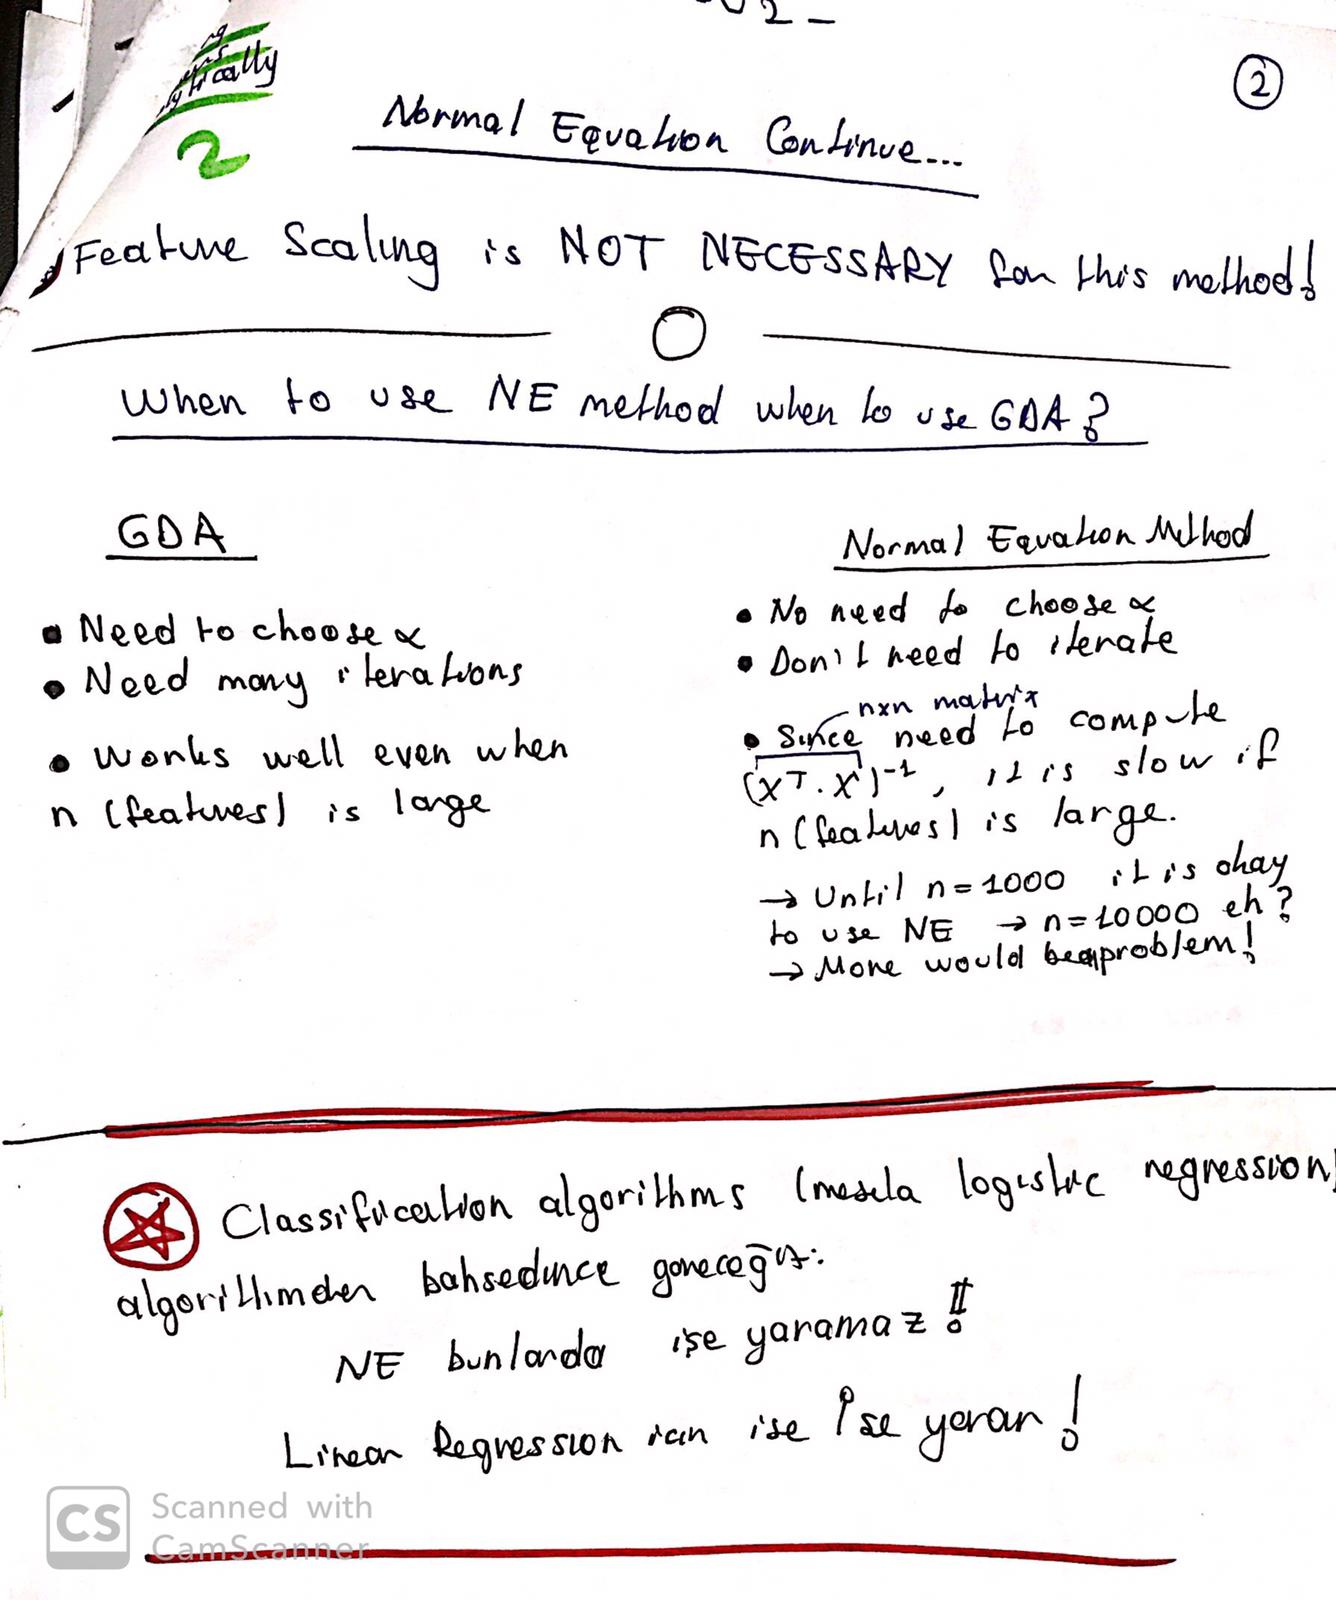 2
②
Normal Equation Continue...
Feature Scaling is NOT NECESSARY for this method!
When to use NE method when to use GDA?
GDA
• Need to choose α
• Need many iterations
• Works well even when
n (features) is large
Normal Equation Method
• No need to choose α
• Don't need to iterate
nxn matrix
• Since need to compute
(X^T . X)^-1, it is slow if
n (features) is large.
→ Until n = 1000 it is okay
to use NE → n = 10000 eh?
→ More would be a problem!
Classification algorithms (mesela logistic regression)
algorithmden bahsedince göreceğiz:
NE bunlarda işe yaramaz!!
Linear Regression için ise İşe yarar!
CS Scanned with
CamScanner